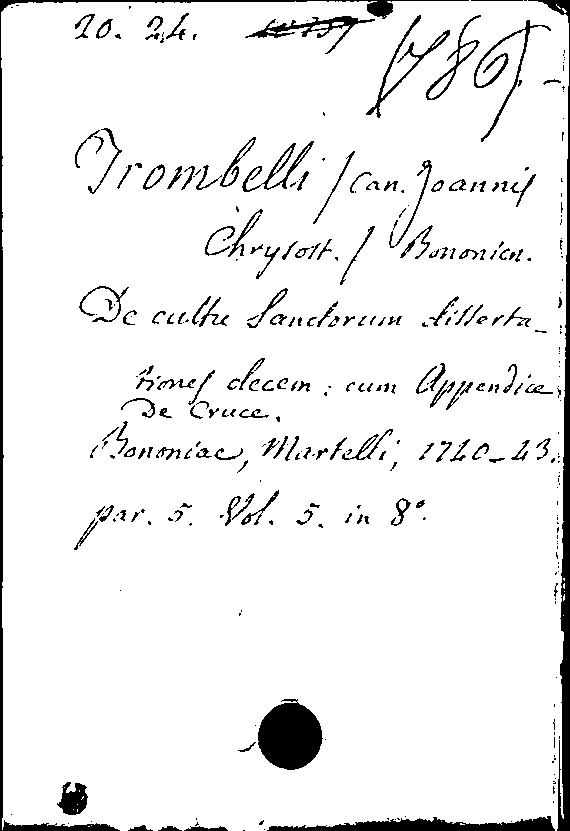 20. 24.
(786)
Trombelli / can. Joannis
Chrysost. / Bononien.
De cultu Sanctorum disserta-
tiones decem: cum Appendice
De Cruce.
Bononiae, Martelli, 1740-43.
par. 5. Vol. 5. in 8°.